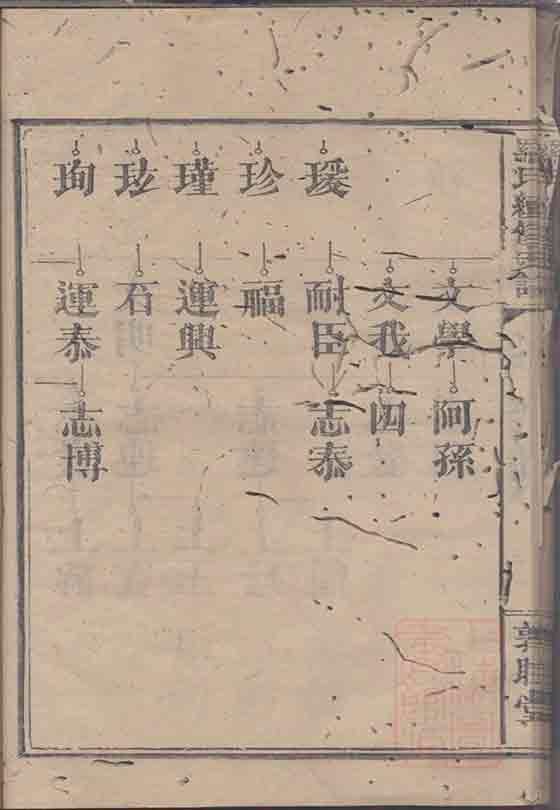 文學 阿孫
文我 四
瑗 耐臣 志泰
珍 福
瑾 運興
玹 石
珣 運泰 志博
敦睦堂